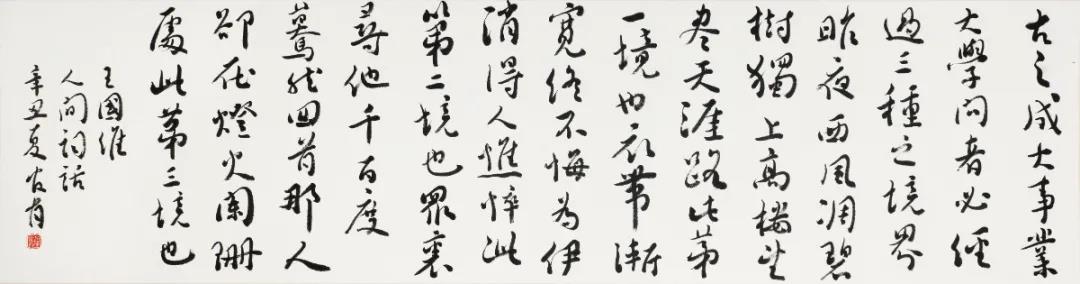 古之成大事業
大學問者必經
過三種之境界
昨夜西風凋碧
樹獨上高樓望
尽天涯路此第
一境也衣帶漸
寬終不悔為伊
消得人憔悴此
第二境也眾裏
尋他千百度
驀然回首那人
卻在燈火闌珊
處此第三境也
王國維
人间詞話
辛丑夏